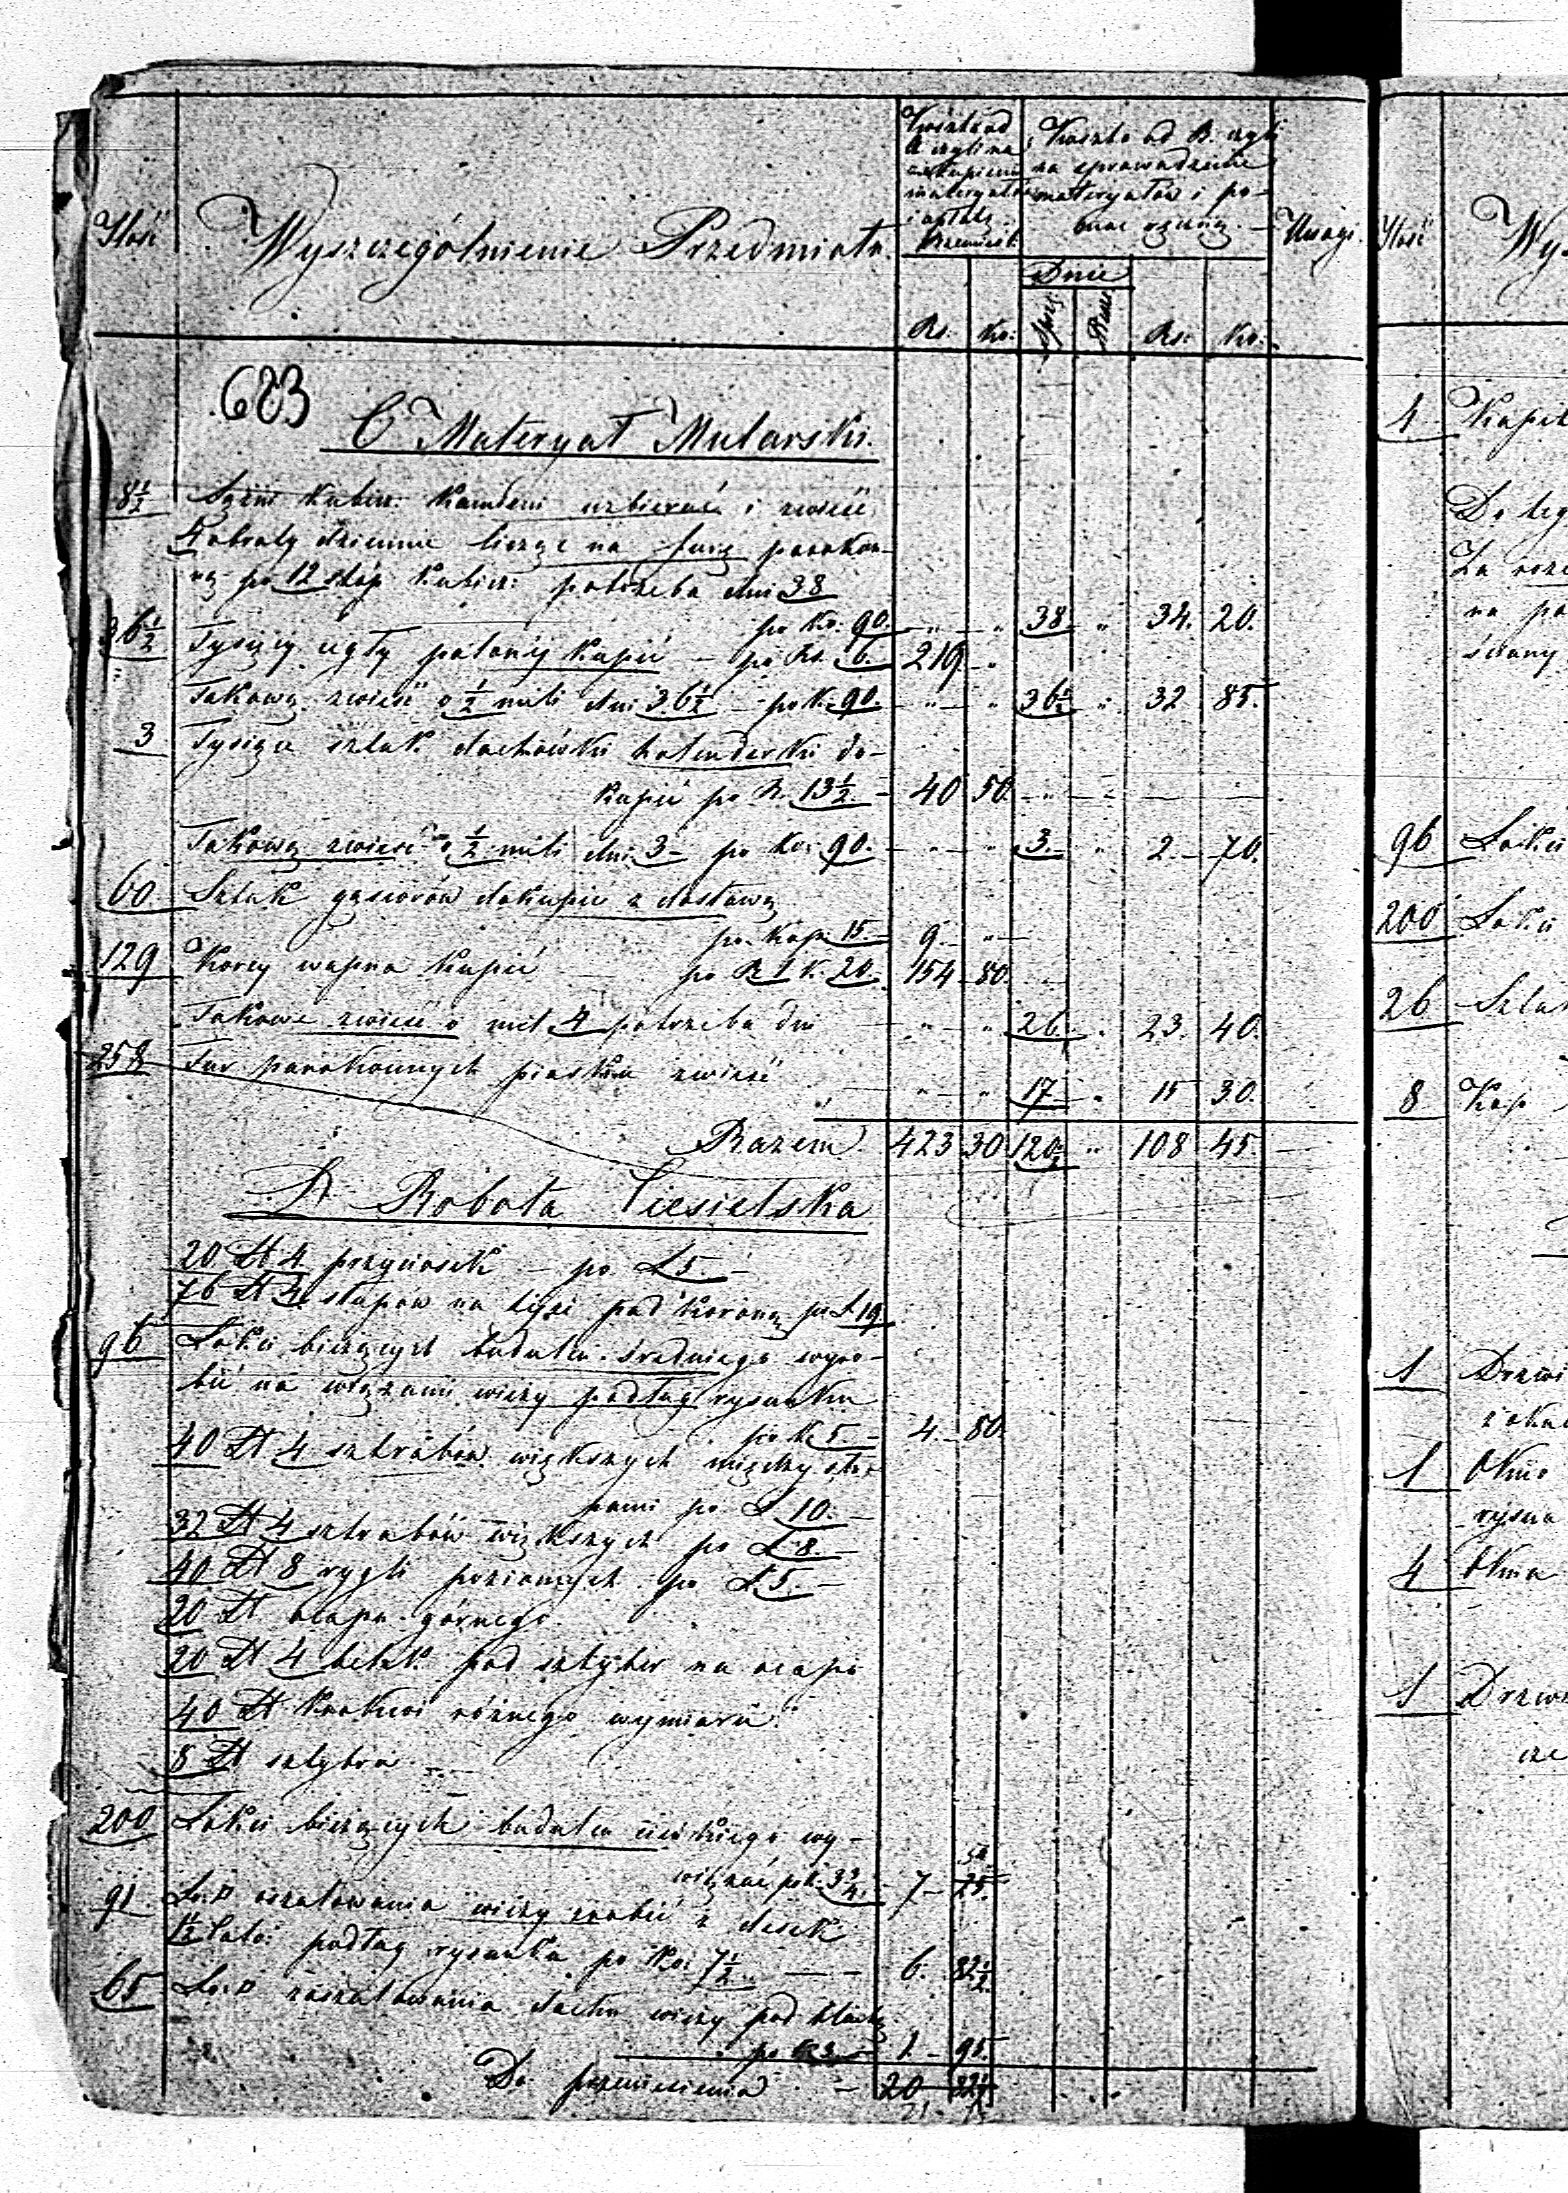 Ilość
Wyszczególnienie Przedmiotu.
Koszta od
A czyli na
zakupienie
materyałów
i opłatę
Rzemieśl.
Koszta od B. czyli
na sprowadzenie
materyałów i po-
moc ręczną.
Uwagi.
Dnie
Rs. Ko. Piesz. Rs: Ko:
683
C Materyał Mularski.
8½ Sążni kubicz. kamieni uzbierać i zwieść
4 obroty dziennie licząc na furę parokon-
ną po 12 stóp kubicz: potrzeba dni 38
po Ko. 90. „ „ 38. „ 34. 20.
36½ Tysięcy cegły palonéj kupić – po Rs. 6. 219 „
Takową zwieść o ½ mili dni 36½ – po K. 90. „ „ 36½ „ 32 85.
3 Tysiące sztuk dachówki holenderki do-
kupić po R. 13½ – 40 50. „
Takową zwieść o ½ mili dni 3 – po Ko: 90. – „ 3. „ 2. 70.
60. Sztuk gąsiorów dokupić z dostawą
po Kop. 15. – 9. „
129 Korcy wapna kupić – po R 1 K. 20. 154 80.
Takowe zwieść o mil 4 potrzeba dni – „ „ 26. „ 23. 40.
258 Fur parokonnych piasku zwieść „ „ 17 „ 15 30.
Razem 423 30 120½ „ 108 45.
D Robota Ciesielska
20 Ł 4 przyciosek – po Ł 5. –
76 Ł 4 słupów na wieżę pod koronę po Ł 19
96 Łokci bieżących budulcu średniego wyro-
bić na wiązanie wieży podług rysunku
po K 5. – 4. 80.
40 Ł 4 sztrabów większych między słu-
pami po Ł 10. –
32 Ł 4 sztrabów większych po Ł 8. –
40 Ł 8 rygli poziomych po Ł 5. –
20 Ł oczapu górnego.
20 Ł 4 belek pod sztyber na oczapie
40 Ł Krokwi różnego wymiaru.
8 Ł sztybra
200 Łokci bieżących budulcu cieńkiego wy-
wiązać po K. 3¾. – 7 – 25.
50
91. Ło:□ oszalowania wieży zrobić z desek
1½ calo: podług rysunku po Ko: 7½ – – 6. 82½
65 Ło:□ zaszalowania dachu wieży pod blachę
po K 3 – 1 – 95.
Do przeniesienia – 20 82½
21.
Ilość
4
96 Łokci
200 Łokci
26 Sztuk
8
1 Drzwi
1 Okno
4 Okna
1 Drzwi